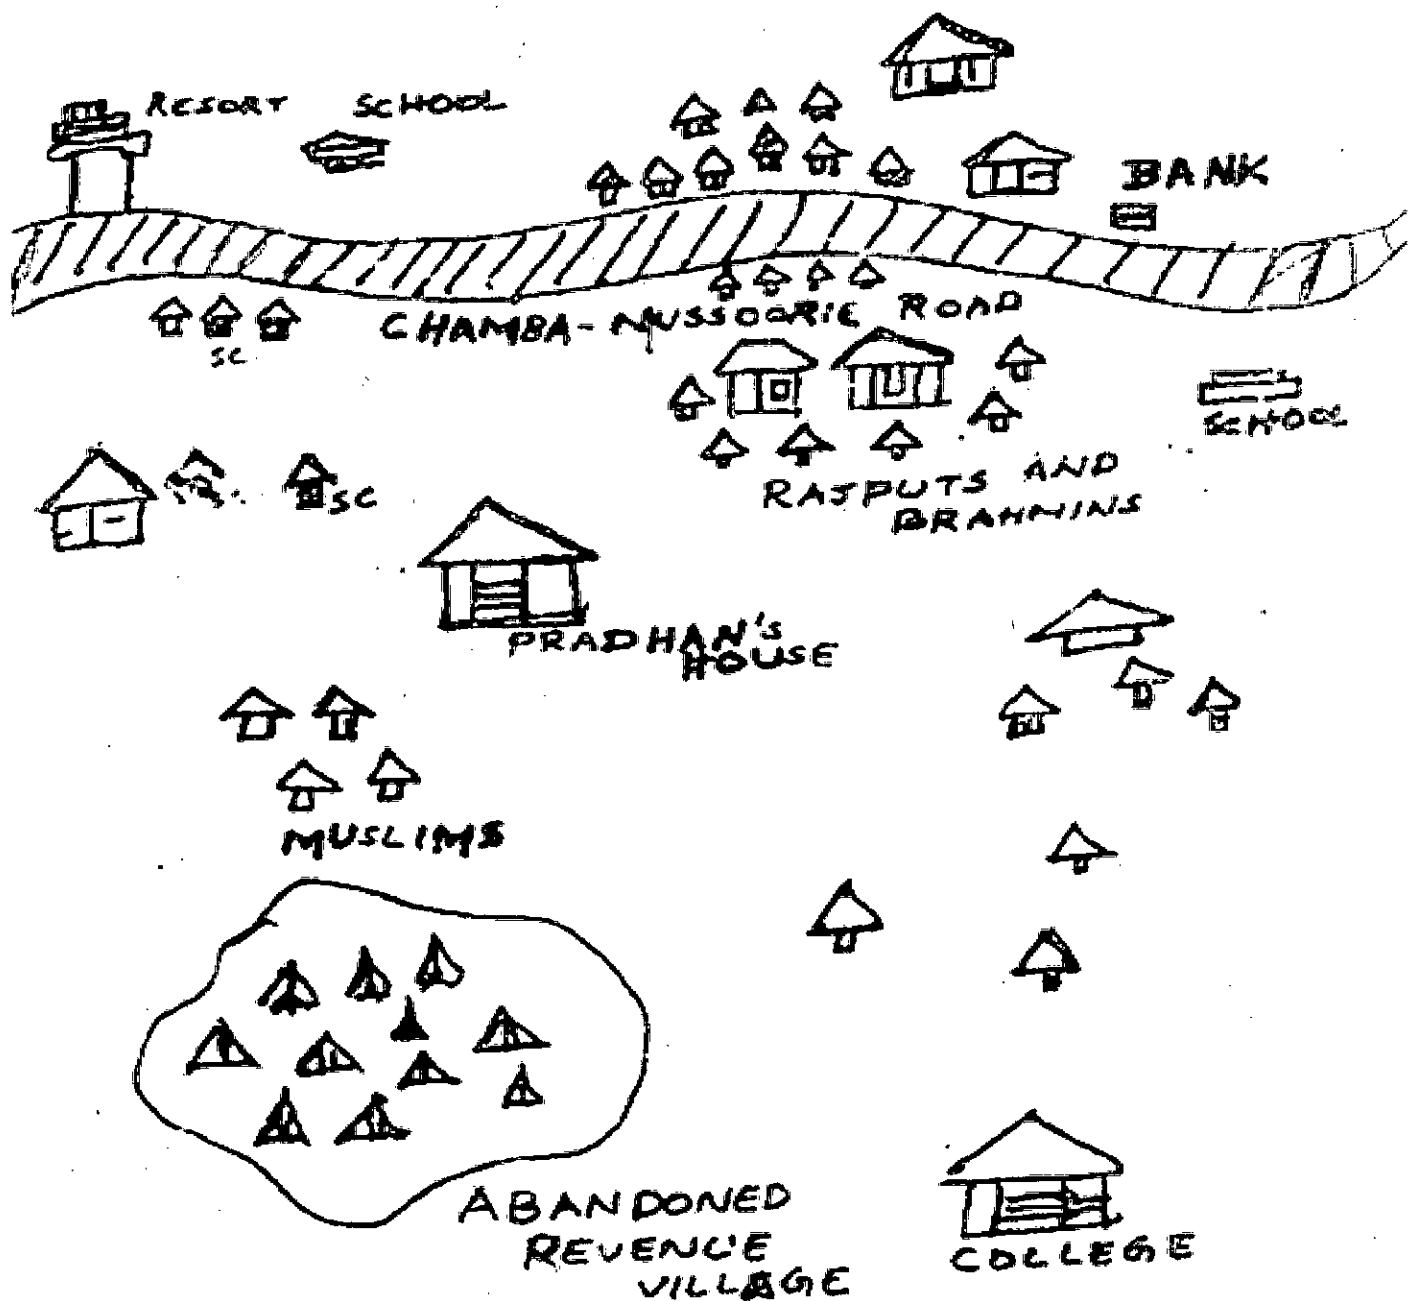 RESORT
SCHOOL
BANK
SC
CHAMBA-MUSSOORIE ROAD
SCHOOL
SC
RAJPUTS AND
BRAHMINS
PRADHAN'S
HOUSE
MUSLIMS
ABANDONED
REVENUE
VILLAGE
COLLEGE